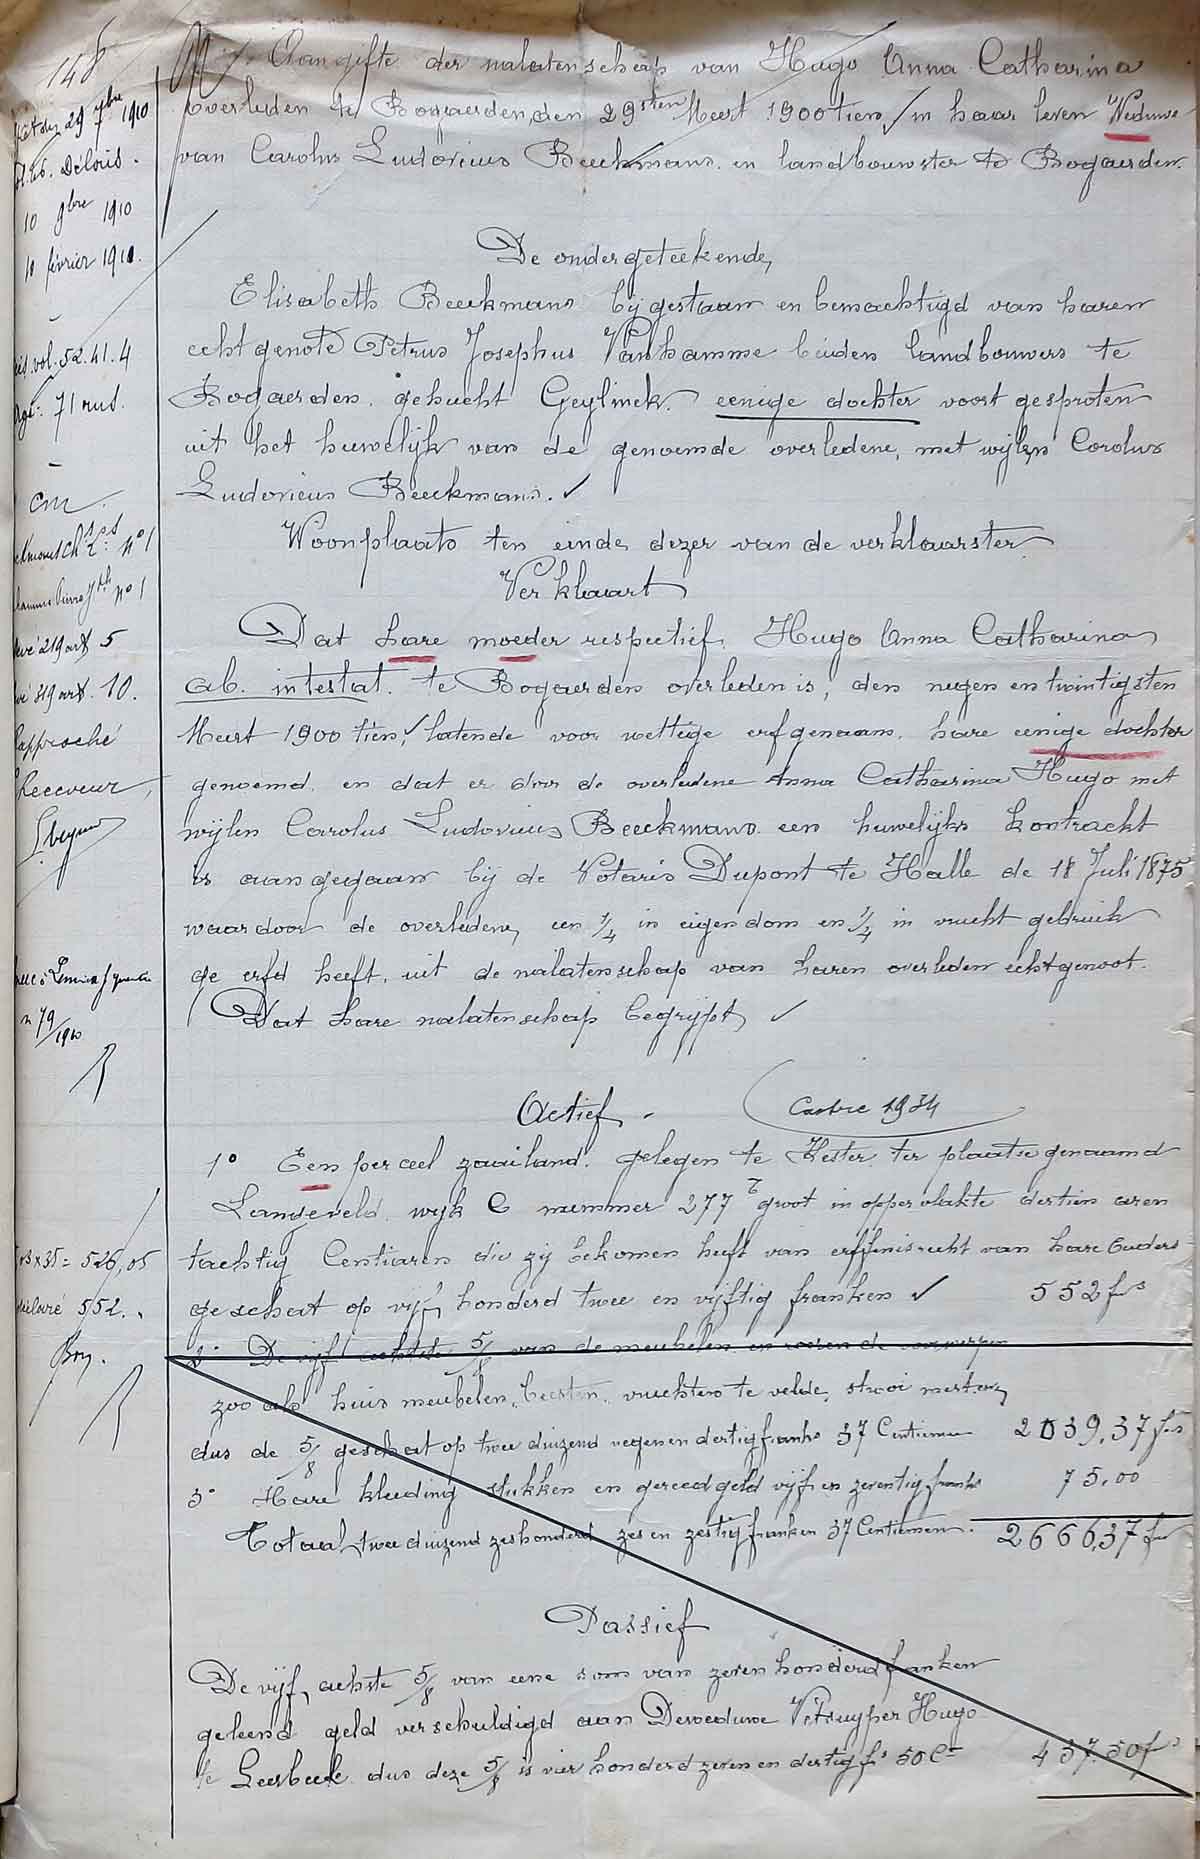 148
29 7bre 1910
Delois.
10 9bre 1910
10 février 1910.
vol. 52.41.4
71 rud.
cm
n° 1
Pierre Jph n° 1
219 art 5
319 art. 10.
Rapproché
Receveur,
n 79/1910
35 = 526,05
déclaré 552.
Aangifte der nalatenschap van Hugo Anna Catharina
overleden te Bogaerden, den 29sten Meert 1900 tien, in haar leven Weduwe
van Carolus Ludovicus Beeckmans. en landbouwster te Bogaerden.
De ondergeteekende,
Elisabeth Beeckmans bijgestaan en bemachtigd van haren
echtgenote Petrus Josephus Vanhamme beiden landbouwers te
Bogaerden. gehucht Geylinck. eenige dochter voortgesproten
uit het huwelijk van de genoemde overledene, met wijlen Carolus
Ludovicus Beeckmans. ✓
Woonplaats ten einde dezer van de verklaarster
Verklaart
Dat hare moeder respectief. Hugo Anna Catharina
ab. intestat. te Bogaerden overleden is, den negen en twintigsten
Meert 1900 tien, latende voor wettige erfgenaam. hare eenige dochter
genoemd. en dat er door de overledene Anna Catharina Hugo met
wijlen Carolus Ludovicus Beeckmans. een huwelijks kontrackt
is aangegaan bij de Notaris Dupont te Halle de 18 Juli 1875
waardoor de overledene, een 1/4 in eigendom en 1/4 in vrucht gebruik
ge erfd heeft. uit de nalatenschap van haren overleden echtgenoot.
Dat hare nalatenschap begrijpt, ✓
Actief. Castre 1934
1° Een perceel zaailand. gelegen te Hester. ter plaatse genaamd
Langeveld. wijk C nummer 277 groot in oppervlakte dertien aren
tachtig Centiaren die zij bekomen heeft van erffenisrecht van hare Ouders
geschat op vijf honderd twee en vijftig franken ✓ 552 frs
2° De vijf achtste 5/8 van de meubelen en roerende voorwerpen
zoo als huis meubelen, beesten. vruchten te velde, strooi mesten,
dus de 5/8 geschat op twee duizend negen en dertig franks 37 Centiemen 2039,37 frs
3° Hare kleeding stukken en gereed geld vijf en zeventig franks 75,00
Totaal, twee duizend zeshonderd zes en zestig franken 37 Centiemen. 2666,37 frs
Passief
De vijf, achste 5/8 van eene som van zeven honderd franken
geleend geld verschuldigd aan Deweduwe Hugo
te Leerbeek dus deze 5/8 is vier honderd zeven en dertig fs 50 C 437.50 fs